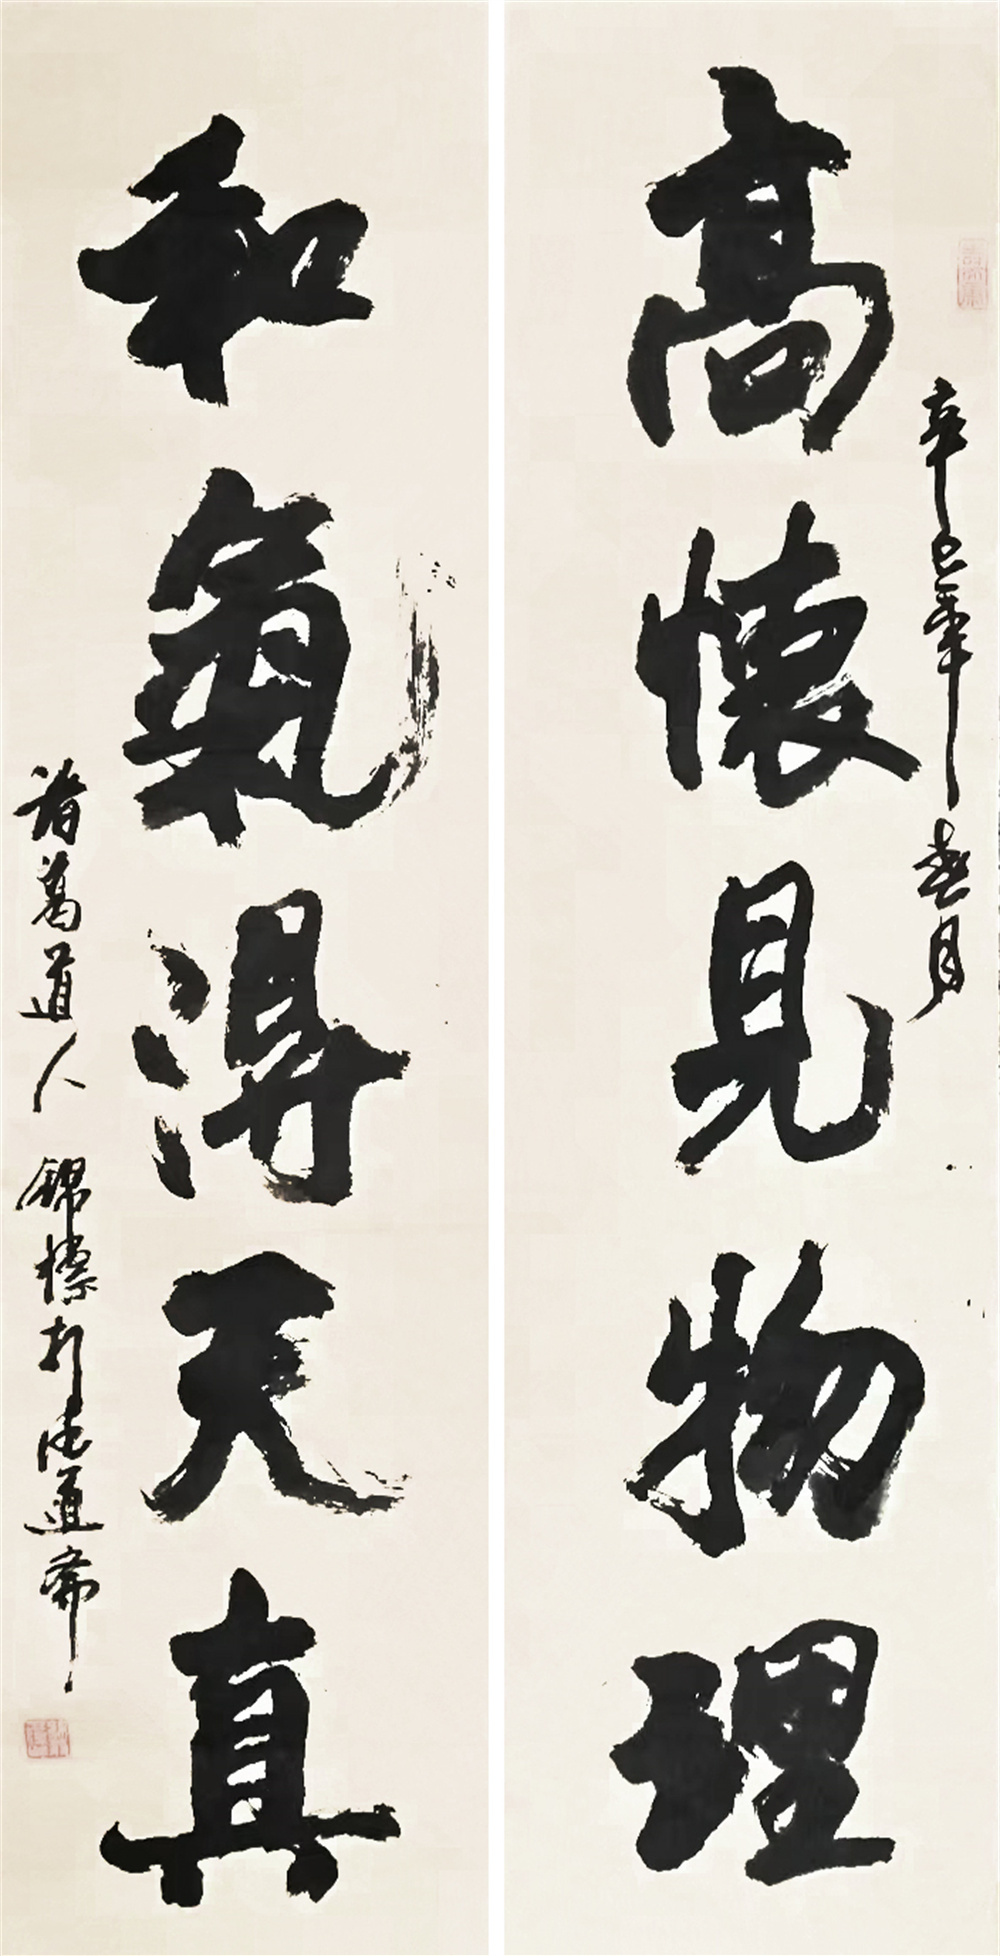 辛巳年春月
高懷見物理
和氣得天真
諸葛道人 錦標於德道齋